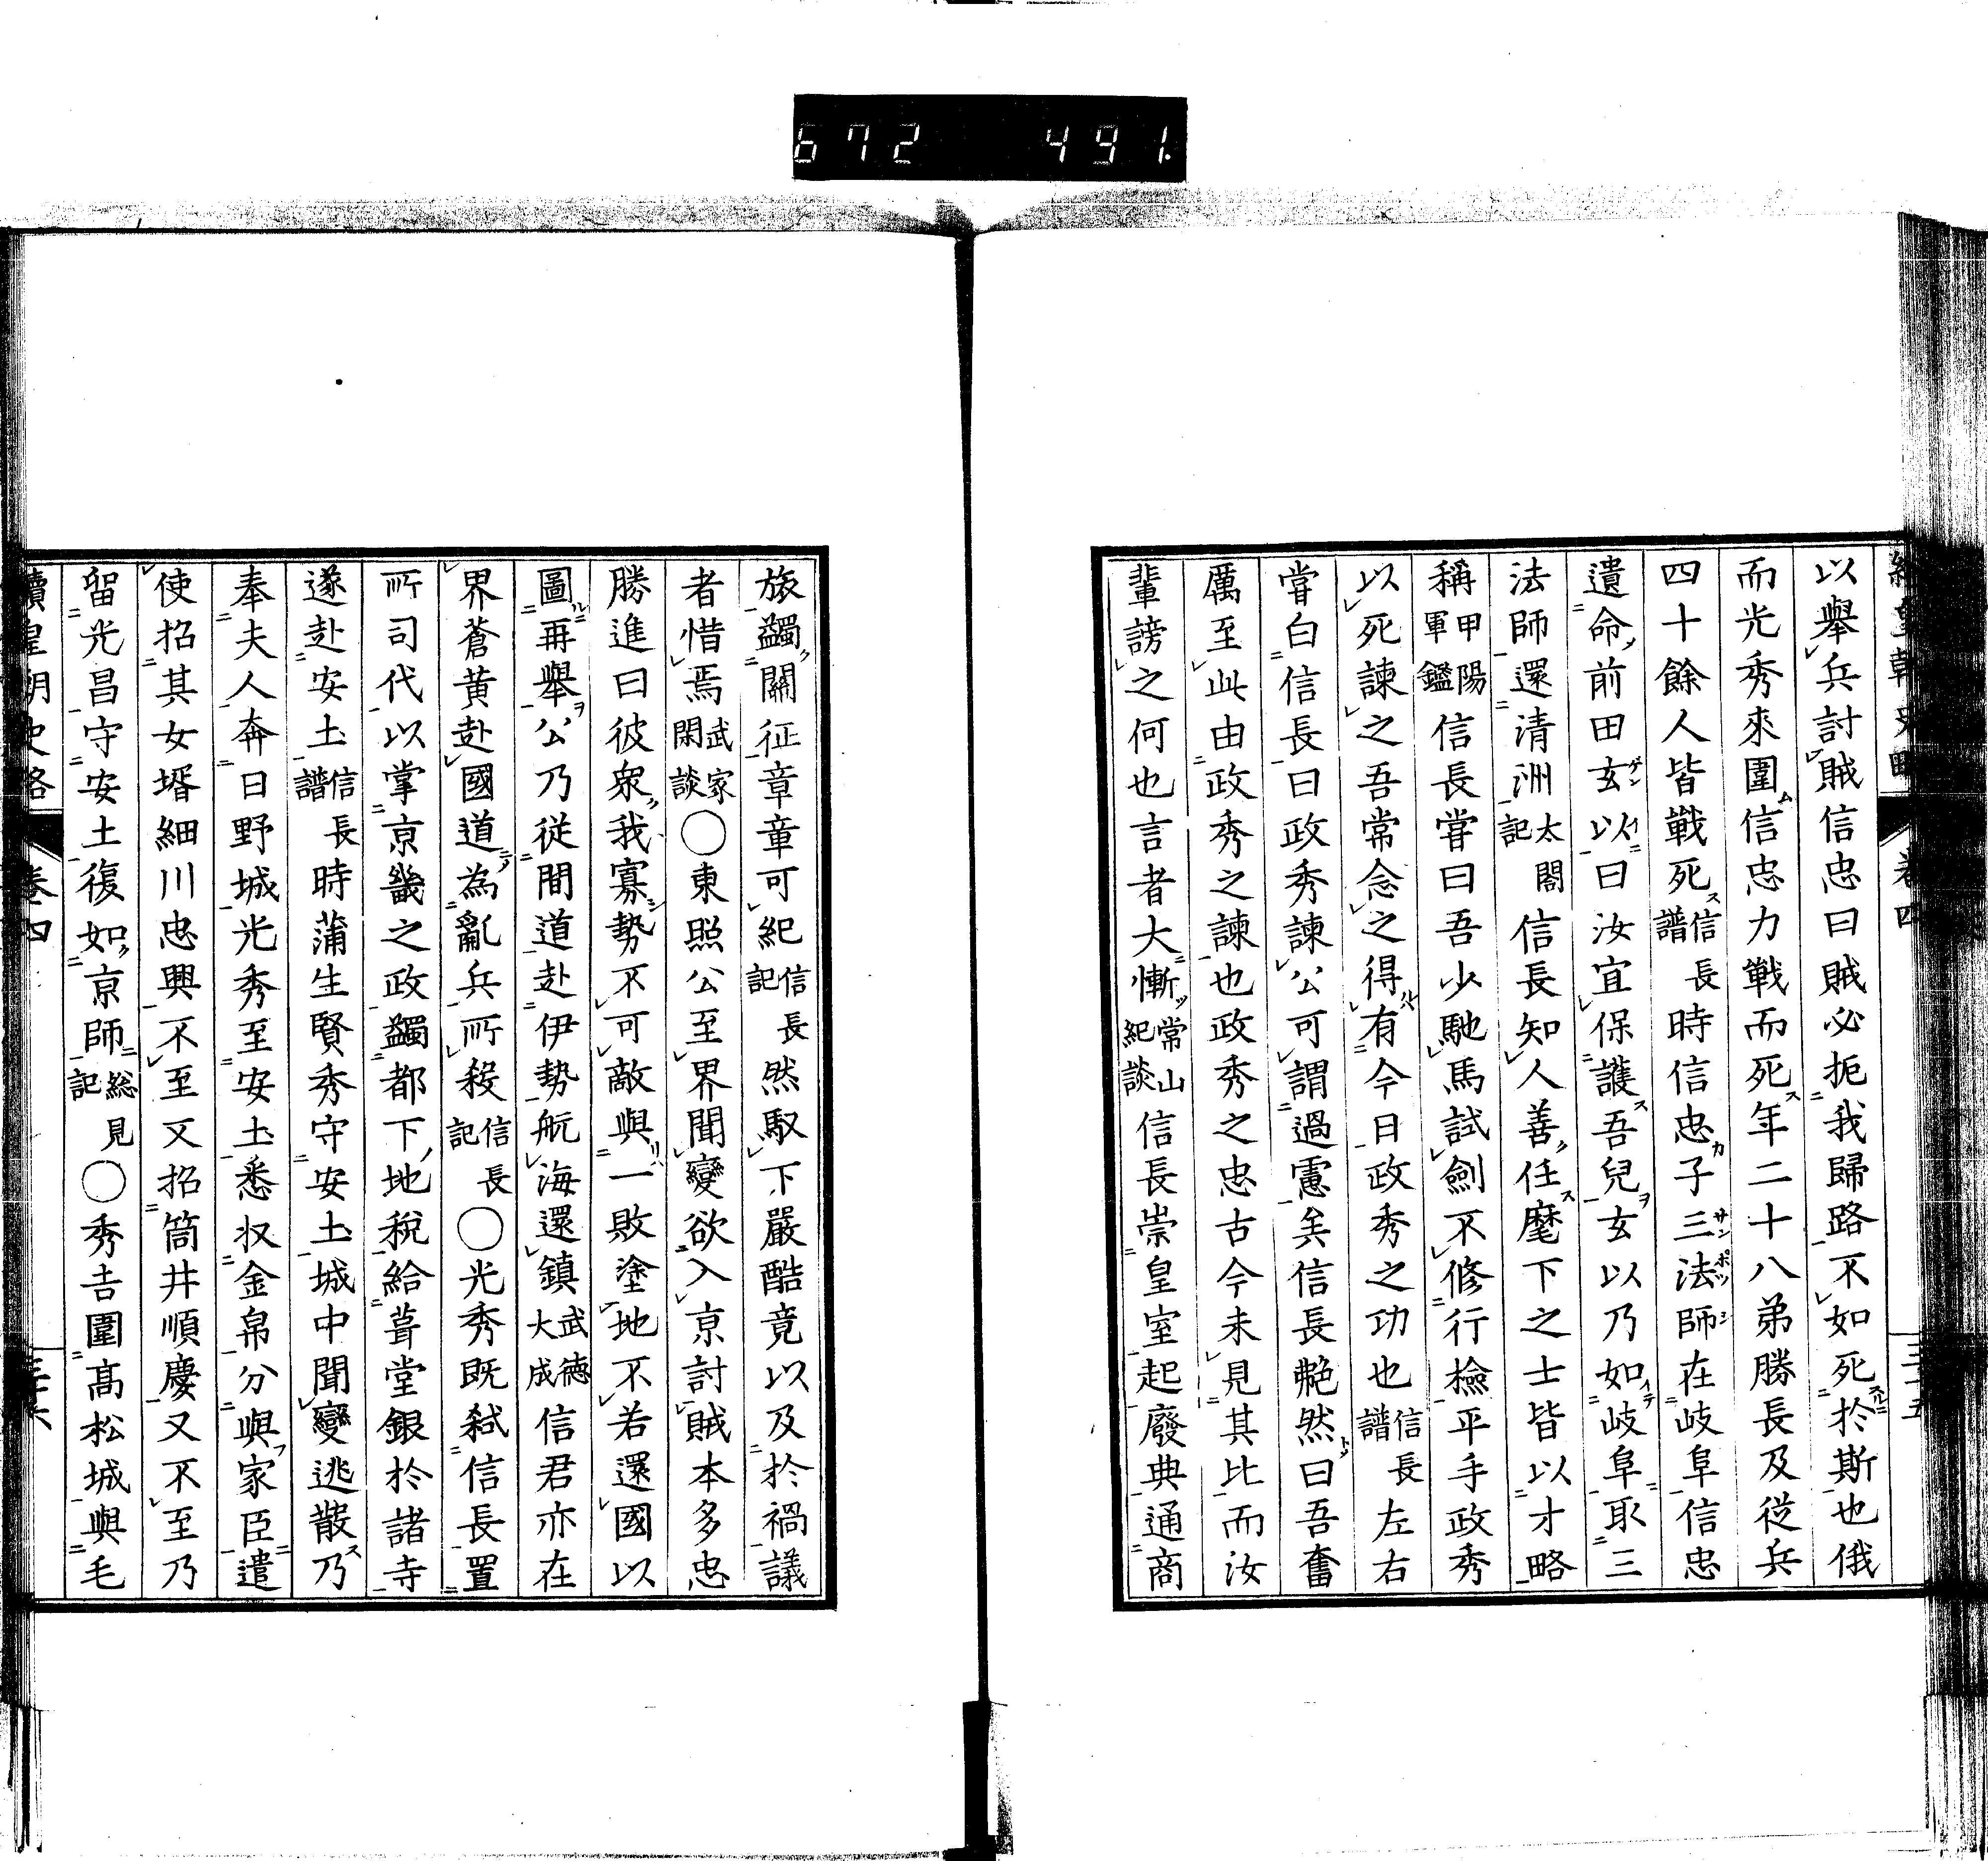 672 491.
以舉兵討賊信忠曰賊必扼我歸路不如死於斯也俄
而光秀來圍信忠力戰而死年二十八弟勝長及從兵
四十餘人皆戰死信長譜時信忠子三法師在岐阜信忠
遺命前田玄以曰汝宜保護吾兒玄以乃如岐阜取三
法師還清洲太閤記信長知人善任麾下之士皆以才略
稱甲陽軍鑑信長嘗曰吾少馳馬試劍不修行檢平手政秀
以死諫之吾常念之得有今日政秀之功也信長譜左右
嘗白信長曰政秀諫公可謂過慮矣信長艴然曰吾奮
厲至此由政秀之諫也政秀之忠古今未見其比而汝
輩謗之何也言者大慚常山紀談信長崇皇室起廢典通商
旅蠲關征章章可紀信長記然馭下嚴酷竟以及於禍議
者惜焉武家閑談○東照公至界聞變欲入京討賊本多忠
勝進曰彼衆我寡勢不可敵與一敗塗地不若還國以
圖再舉公乃從間道赴伊勢航海還鎮武德大成信君亦在
界蒼黄赴國道為亂兵所殺信長記○光秀既弒信長置
所司代以掌京畿之政蠲都下地稅給葺堂銀於諸寺
遂赴安土信長譜時蒲生賢秀守安土城中聞變逃散乃
奉夫人奔日野城光秀至安土悉收金帛分與家臣遣
使招其女壻細川忠興不至又招筒井順慶又不至乃
留光昌守安土復如京師総見記○秀吉圍高松城與毛
續皇朝史略 卷四